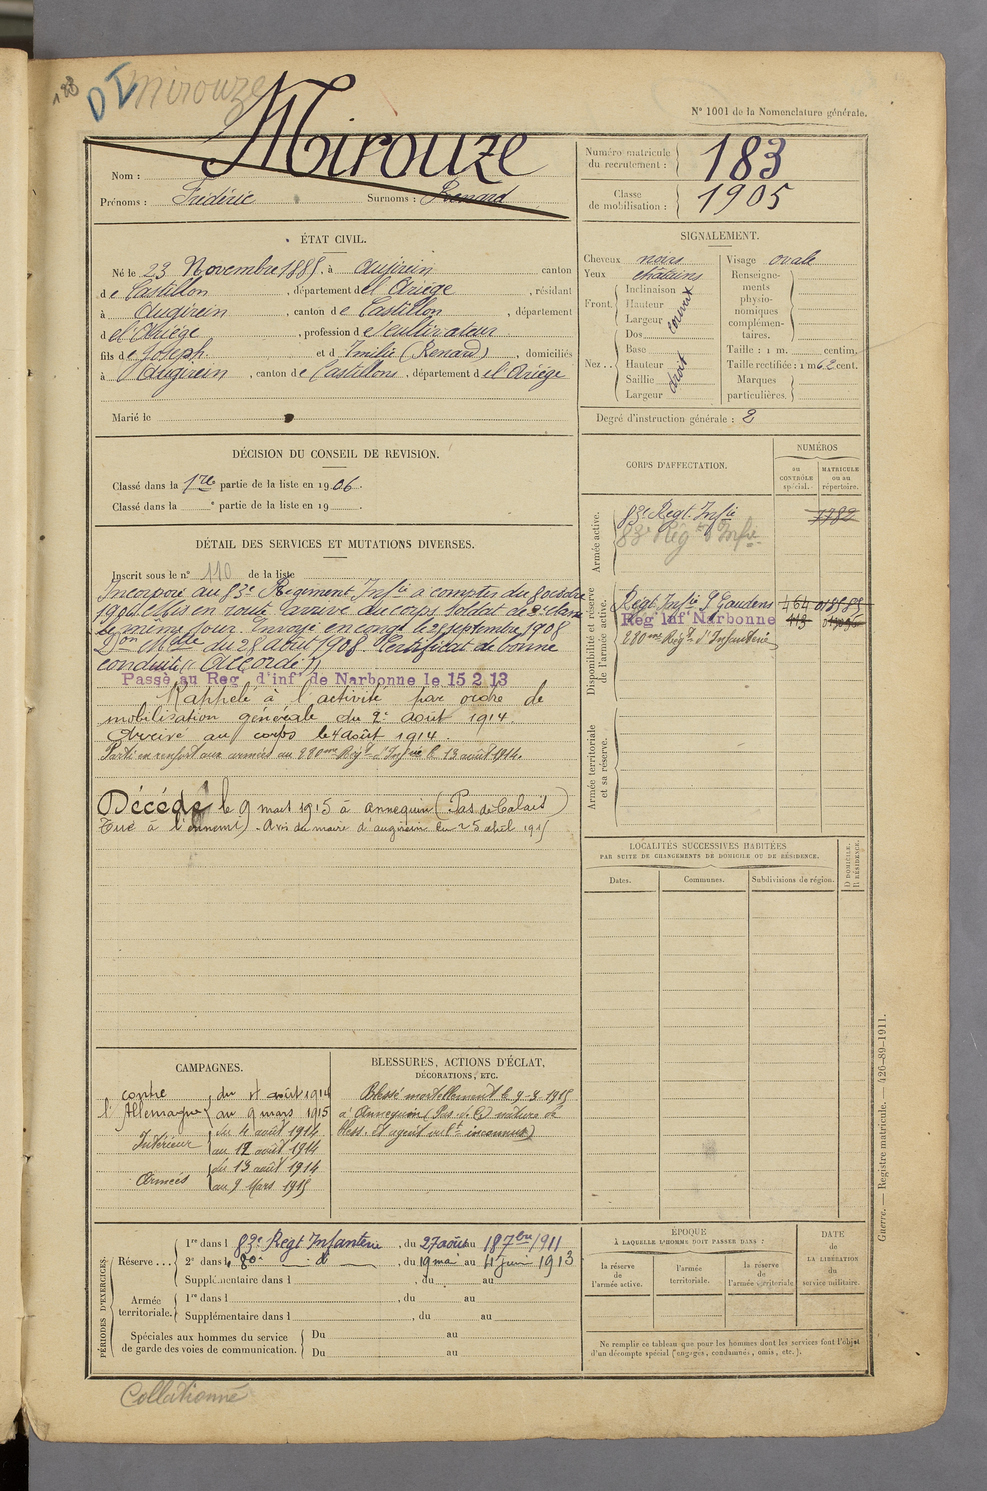 188
DI
Mirouze
N° 1001 de la Nomenclature générale.
Nom : Mirouze
Prénoms : Frédéric Surnoms : Renard
Numéro matricule du recrutement : 183
Classe de mobilisation : 1905
ÉTAT CIVIL.
Né le 23 Novembre 1885, à Augirein canton
de Castillon, département de l'Ariège, résidant
à Augirein, canton de Castillon, département
de l'Ariège, profession de cultivateur
fils de Joseph et d'Emilie (Renard), domiciliés
à Augirein, canton de Castillons, département de l'Ariège
Marié le
SIGNALEMENT.
Cheveux noirs
Yeux châtains
Front. Inclinaison
Hauteur
Largeur
couvert
Nez .. Dos
Base
Hauteur
Saillie
Largeur
droit
Visage ovale
Renseigne-
ments
physio-
nomiques
complémen-
taires.
Taille : 1 m. centim.
Taille rectifiée : 1 m 62 cent.
Marques
particulières.
Degré d'instruction générale : 2
DÉCISION DU CONSEIL DE REVISION.
Classé dans la 1re partie de la liste en 1906.
Classé dans la e partie de la liste en 19 .
DÉTAIL DES SERVICES ET MUTATIONS DIVERSES.
Inscrit sous le n° 110 de la liste
Incorporé au 83e Régiment Infie à compter du 8 octobre
1906. Mis en route. Arrivé au corps soldat de 2e classe
le même jour. Envoyé en congé le 25 septembre 1908
Don Melle du 28 août 1908. Certificat de bonne
conduite « Accordé »
Passé au Reg. d'inf. de Narbonne le 15 2 13
Rappelé à l'activité par ordre de
mobilisation générale du 2e août 1914.
Arrivé au corps le 4 août 1914.
Parti en renfort aux armées au 280me Régt d'Infrie le 13 août 1914.
Décédé le 9 mars 1915 à Annequin (Pas de Calais)
Tué à l'ennemi). Avis du maire d'augirein du 25 avril 1915
CORPS D'AFFECTATION.
NUMÉROS
au CONTRÔLE spécial.
MATRICULE ou au répertoire.
Armée active.
83e Régt. Infie
83e Régt d'Infie
Disponibilité et réserve de l'armée active.
Régt Infie St Gaudens 464
Reg Inf Narbonne
280me Régt d'Infanterie
Armée territoriale et sa réserve.
LOCALITÉS SUCCESSIVES HABITÉES
PAR SUITE DE CHANGEMENTS DE DOMICILE OU DE RÉSIDENCE.
Dates. Communes. Subdivisions de région. D DOMICILE. R RÉSIDENCE.
CAMPAGNES.
contre l'Allemagne du 4 août 1914
au 9 mars 1915
Intérieur du 4 août 1914
au 12 août 1914
Armées du 13 août 1914
au 9 Mars 1915
BLESSURES, ACTIONS D'ÉCLAT,
DÉCORATIONS, ETC.
Blessé mortellement le 9-3-1915
à Annequin (Pas de C) nature de
bless. et agent vult inconnus)
PÉRIODES D'EXERCICES.
Réserve ... 1re dans l 83e Régt Infanterie, du 27 août au 18 7bre 1911
2e dans l 80e do, du 19 mai au 4 juin 1913
Supplémentaire dans l , du au
Armée territoriale. 1re dans l , du au
Supplémentaire dans l , du au
Spéciales aux hommes du service
de garde des voies de communication. Du au
Du au
ÉPOQUE
À LAQUELLE L'HOMME DOIT PASSER DANS :
la réserve de l'armée active.
l'armée territoriale.
la réserve de l'armée territoriale
DATE de LA LIBÉRATION du service militaire.
Ne remplir ce tableau que pour les hommes dont les services font l'objet
d'un décompte spécial (engagés, condamnés, omis, etc.).
Guerre. — Registre matricule. — 426-89-1911.
Collationné